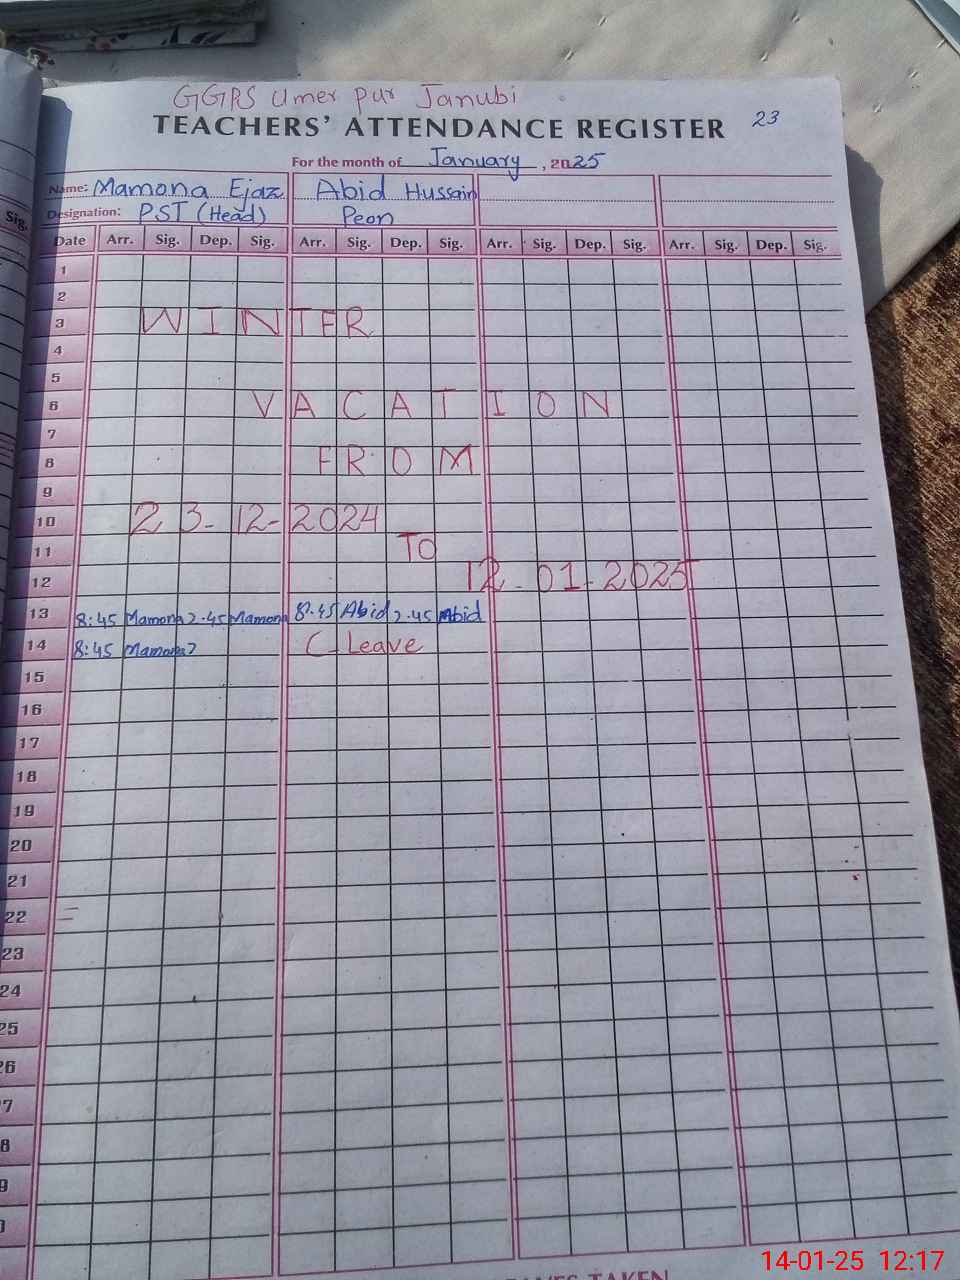 GGPS Umer pur Janubi
TEACHERS' ATTENDANCE REGISTER 23
For the month of January, 2025
Name: Mamona Ejaz Abid Hussain
Designation: PST (Head) Peon
Sig.
Date Arr. Sig. Dep. Sig. Arr. Sig. Dep. Sig. Arr. Sig. Dep. Sig. Arr. Sig. Dep. Sig.
1
2
3 WINTER
4
5
6 VACATION
7
8 FROM
9
10 23-12-2024
11 TO
12 12-01-2025
13 8:45 Mamona 2.45 Mamona 8.45 Abid 2.45 Abid
14 8:45 Mamona C-Leave
15
16
17
18
19
20
21
22
23
24
25
26
7
8
9
14-01-25 12:17